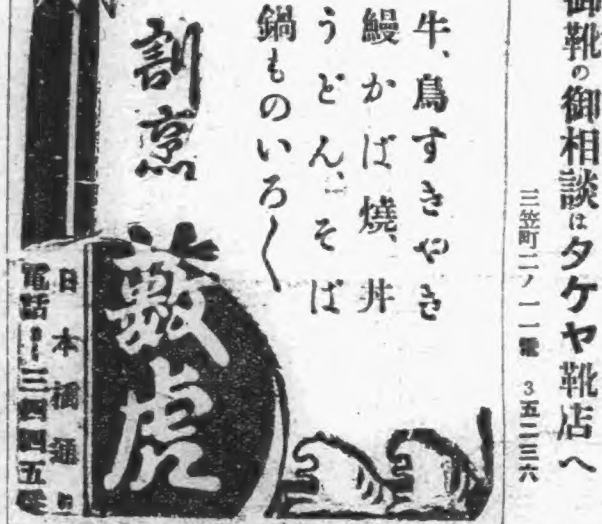 御靴の御相談はタケヤ靴店へ
三笠町二ノ一一電 3五二三六
牛、鳥すきやき
鰻かば燒、丼
うどん、そば
鍋ものいろ〱
割烹
藪虎
日本橋通り
電話